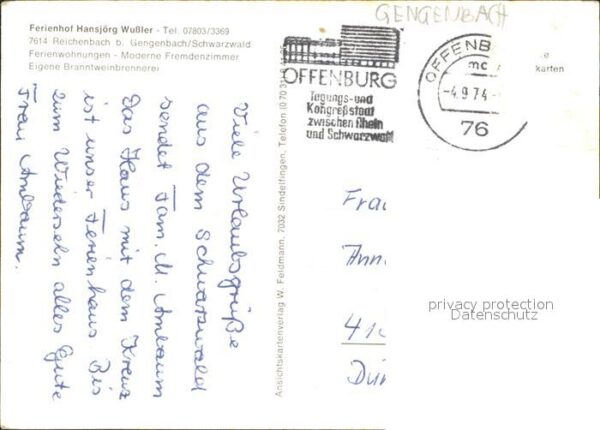 GENGENBACH
Ferienhof Hansjörg Wußler - Tel. 07803/3369
7614 Reichenbach b. Gengenbach/Schwarzwald
Ferienwohnungen - Moderne Fremdenzimmer
Eigene Branntweinbrennerei
Viele Urlaubsgrüße
aus dem Schwarzwald
sendet Fam. M. Ambaum
Das Haus mit dem Kreuz
ist unser Ferienhaus Bis
zum Wiedersehn alles Gute
Frau Ambaum.
Ansichtskartenverlag W. Feldmann, 7032 Sindelfingen, Telefon
OFFENBURG
Tagungs-und
Kongreßstadt
zwischen Rhein
und Schwarzwald
OFFENB
mc
-4.9.74-
76
karten
Frau
Ann
41
privacy protection
Datenschutz